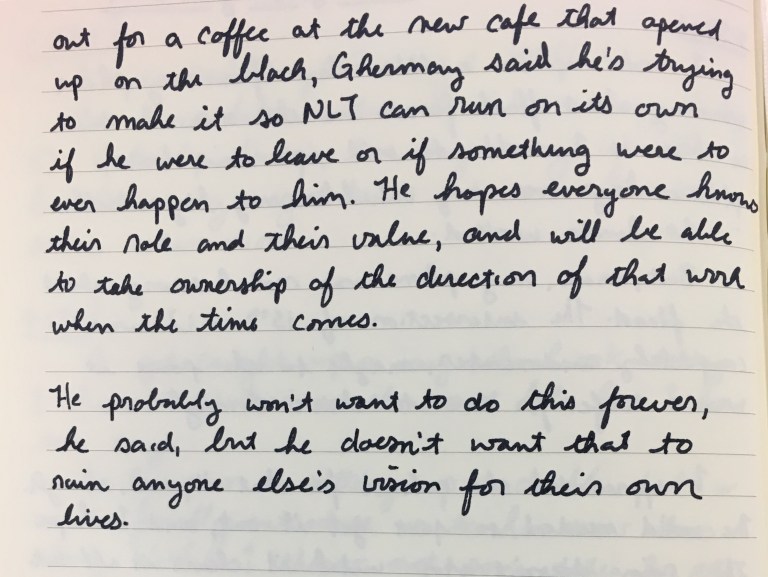 out for a coffee at the new cafe that opened
up on the block, Ghermay said he's trying
to make it so NLT can run on its own
if he were to leave or if something were to
ever happen to him. He hopes everyone knows
their role and their value, and will be able
to take ownership of the direction of that work
when the time comes.
He probably won't want to do this forever,
he said, but he doesn't want that to
ruin anyone else's vision for their own
lives.